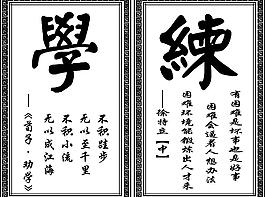 學
不积跬步
无以至千里
不积小流
无以成江海
——《荀子·劝学》
練
有困难是坏事也是好事
困难会逼着人想办法
困难环境能锻炼出人才来
——徐特立【中】